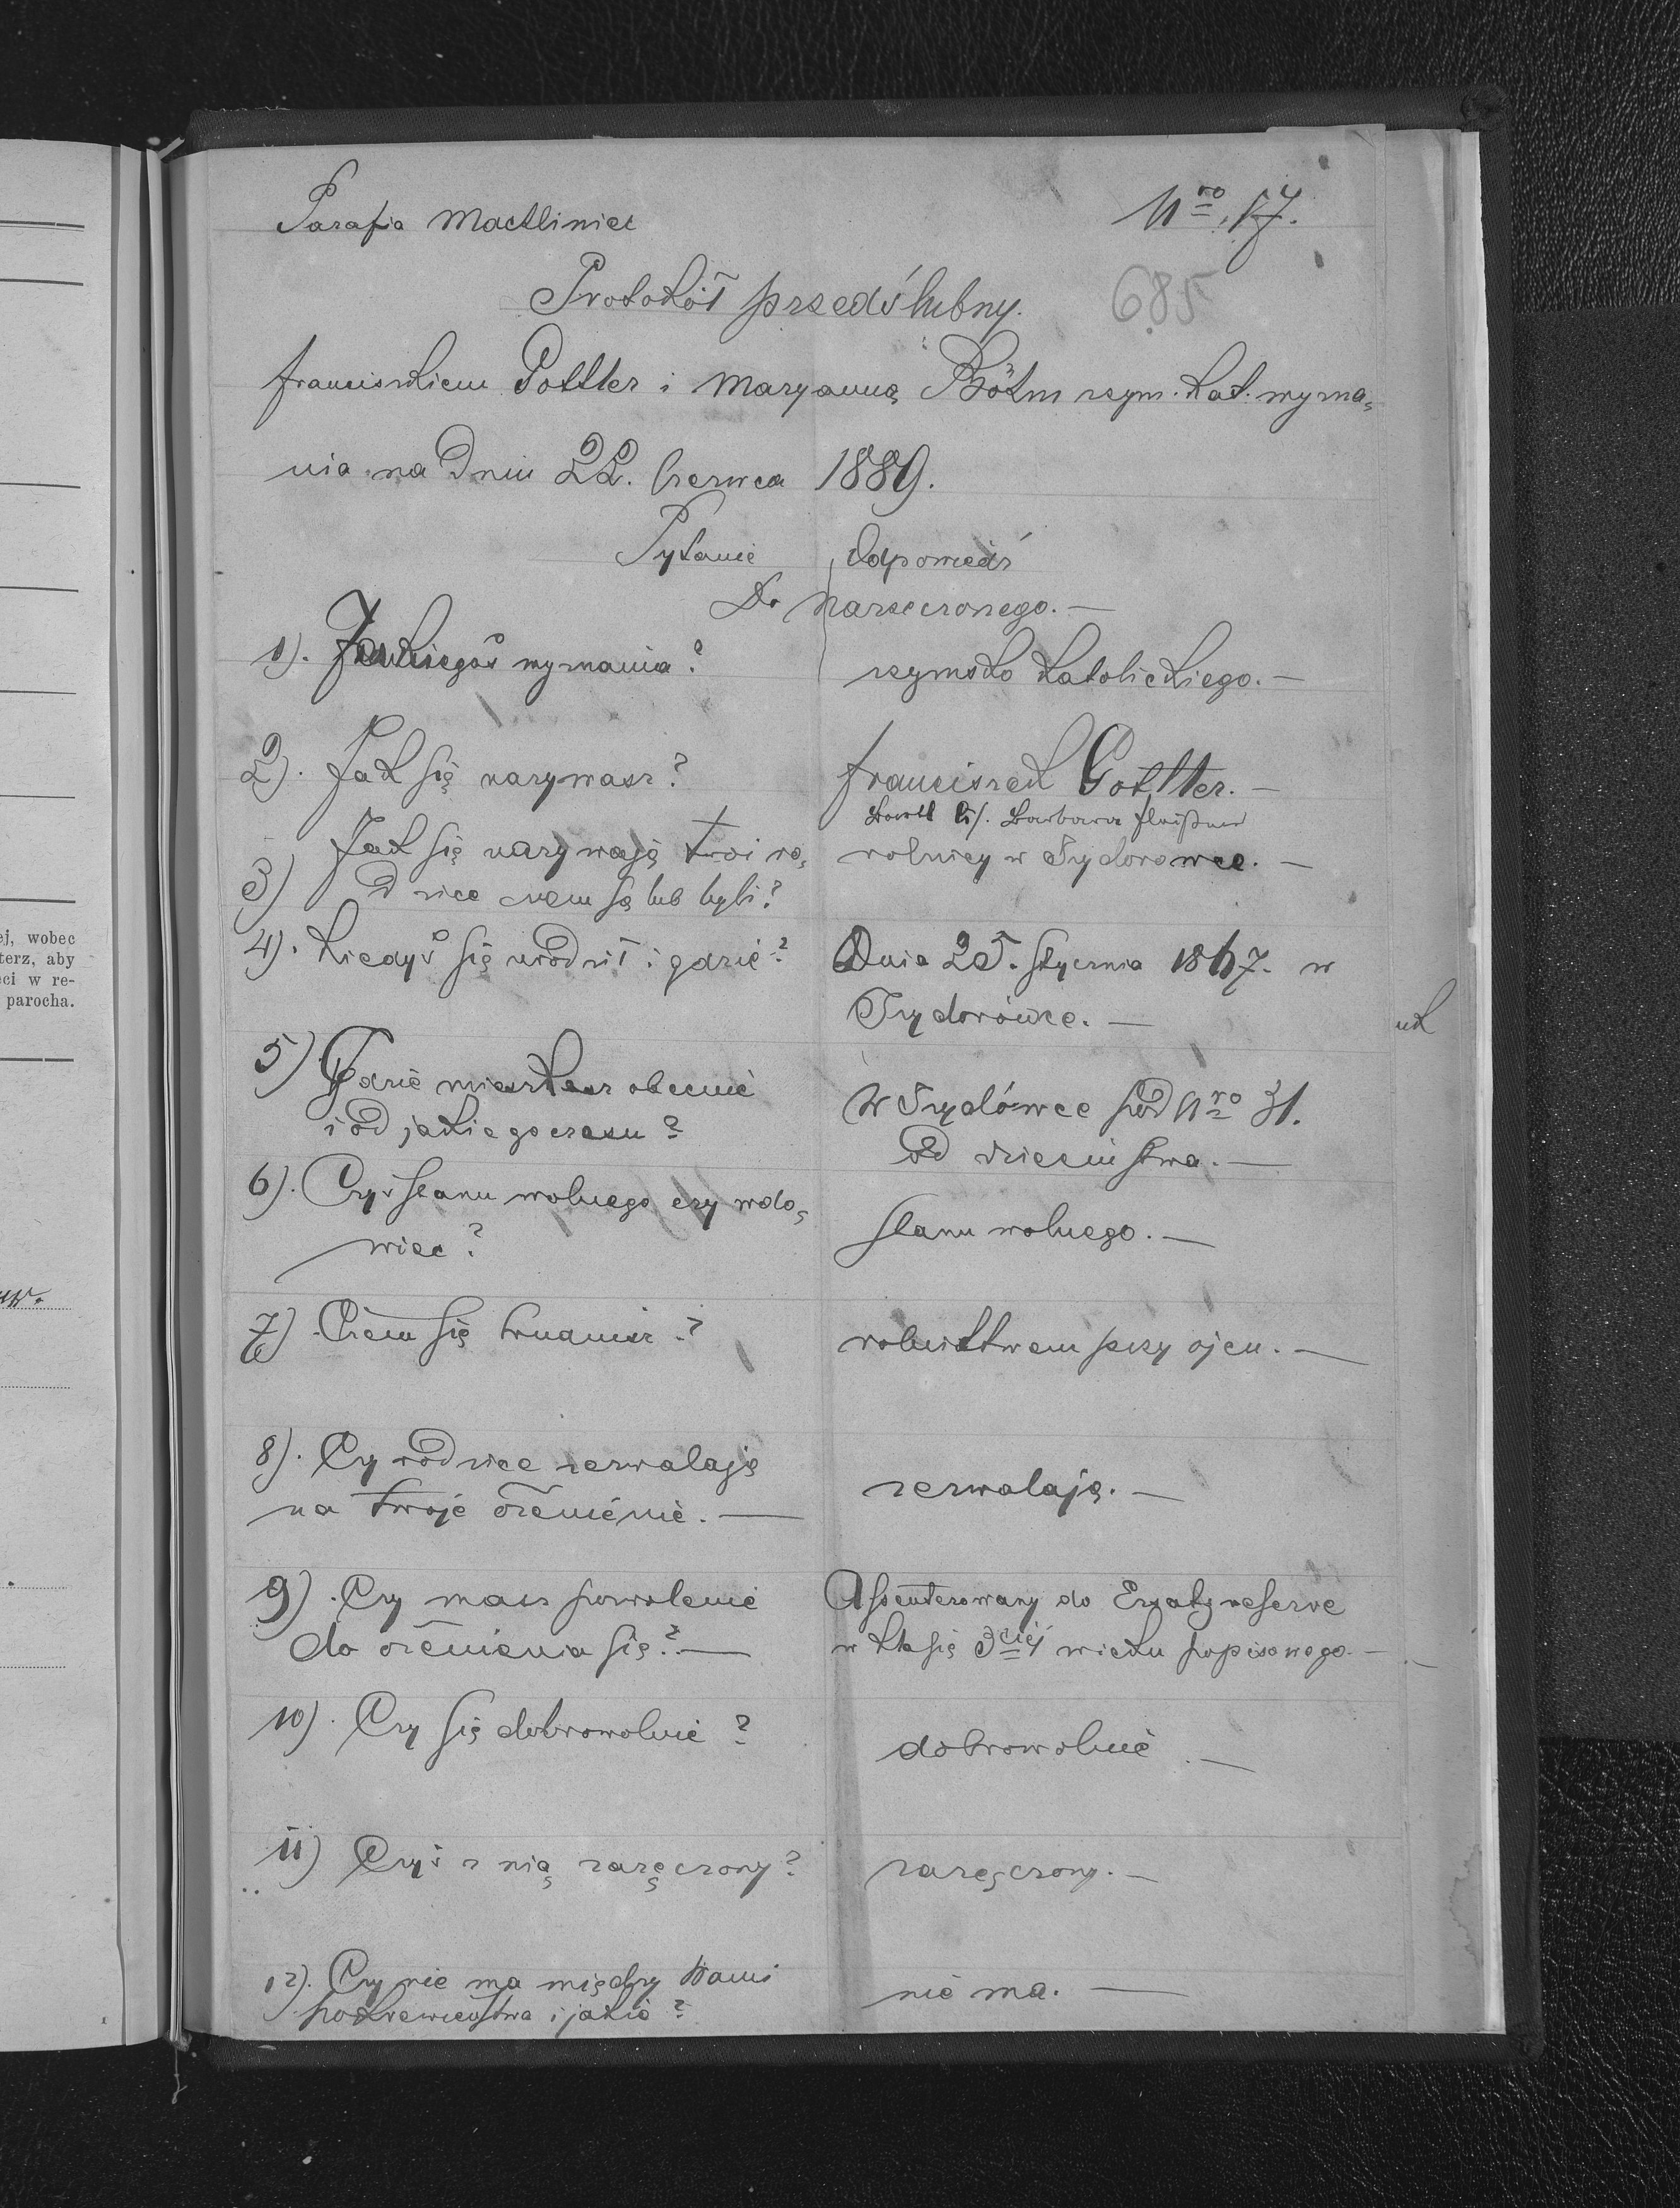 Parafia Machliniec
Nro. 17.
Protokół przedślubny.
685
Franciszkiem Pottler i Maryanną Böhm rzym. kat. wyzna„
nia na Dniu 22. Czerwca 1889.
Pytanie Odpowiedź
Do Narzeczonego. —
1). Jakiegoś wyznania? rzymsko katolickiego. —
2). Jak się nazywasz? Franciszek Gottler. —
3) Jak się nazywają twoi ro„
dzice czem są lub byli?
Barbara
rolnicy w Izydorowce. —
4). Kiedyś się urodził i gdzie? Dnia 25. Stycznia 1867. w
Izydorówce. —
5) Gdzie mieszkasz obecnie
i od jakiego czasu?
W Izydówce pod Nro 31.
od dzieciństwa. —
6). Czyś stanu wolnego czy wdo„
wiec?
stanu wolnego. —
7) Czem się trudnisz? rolnictwem przy ojcu. —
8). Czy rodzice zezwalają
na twoje ożenienie. —
zezwalają. —
9). Czy masz pozwolenie
do ożenienia się? —
Assenterowany do Ersatzreserve
w klasie 3ciej wieku popisowego. —
10). Czy się dobrowolnie? dobrowolnie. —
11) Czyś z nią zaręczony? zaręczony. —
12). Czy nie ma między Wami
pokrewieństwa i jakie?
nie ma. —
ej, wobec
terz, aby
eci w re-
parocha.